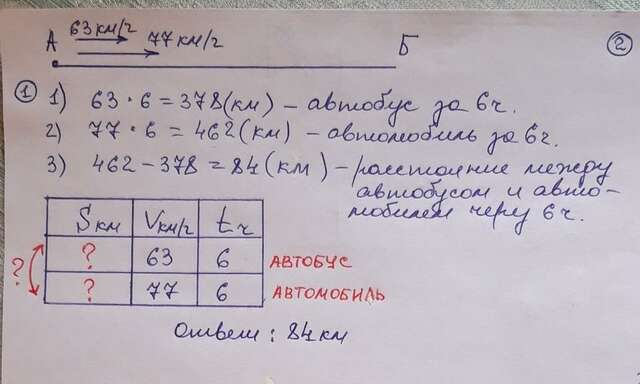 63 км/ч
А 77 км/ч Б
2
1 1) 63 · 6 = 378 (км) – автобус за 6 ч.
2) 77 · 6 = 462 (км) – автомобиль за 6 ч.
3) 462 – 378 = 84 (км) – расстояние между
автобусом и авто-
мобилем через 6 ч.
S км V км/ч t ч
? 63 6 АВТОБУС
?
? 77 6 АВТОМОБИЛЬ
Ответ: 84 км